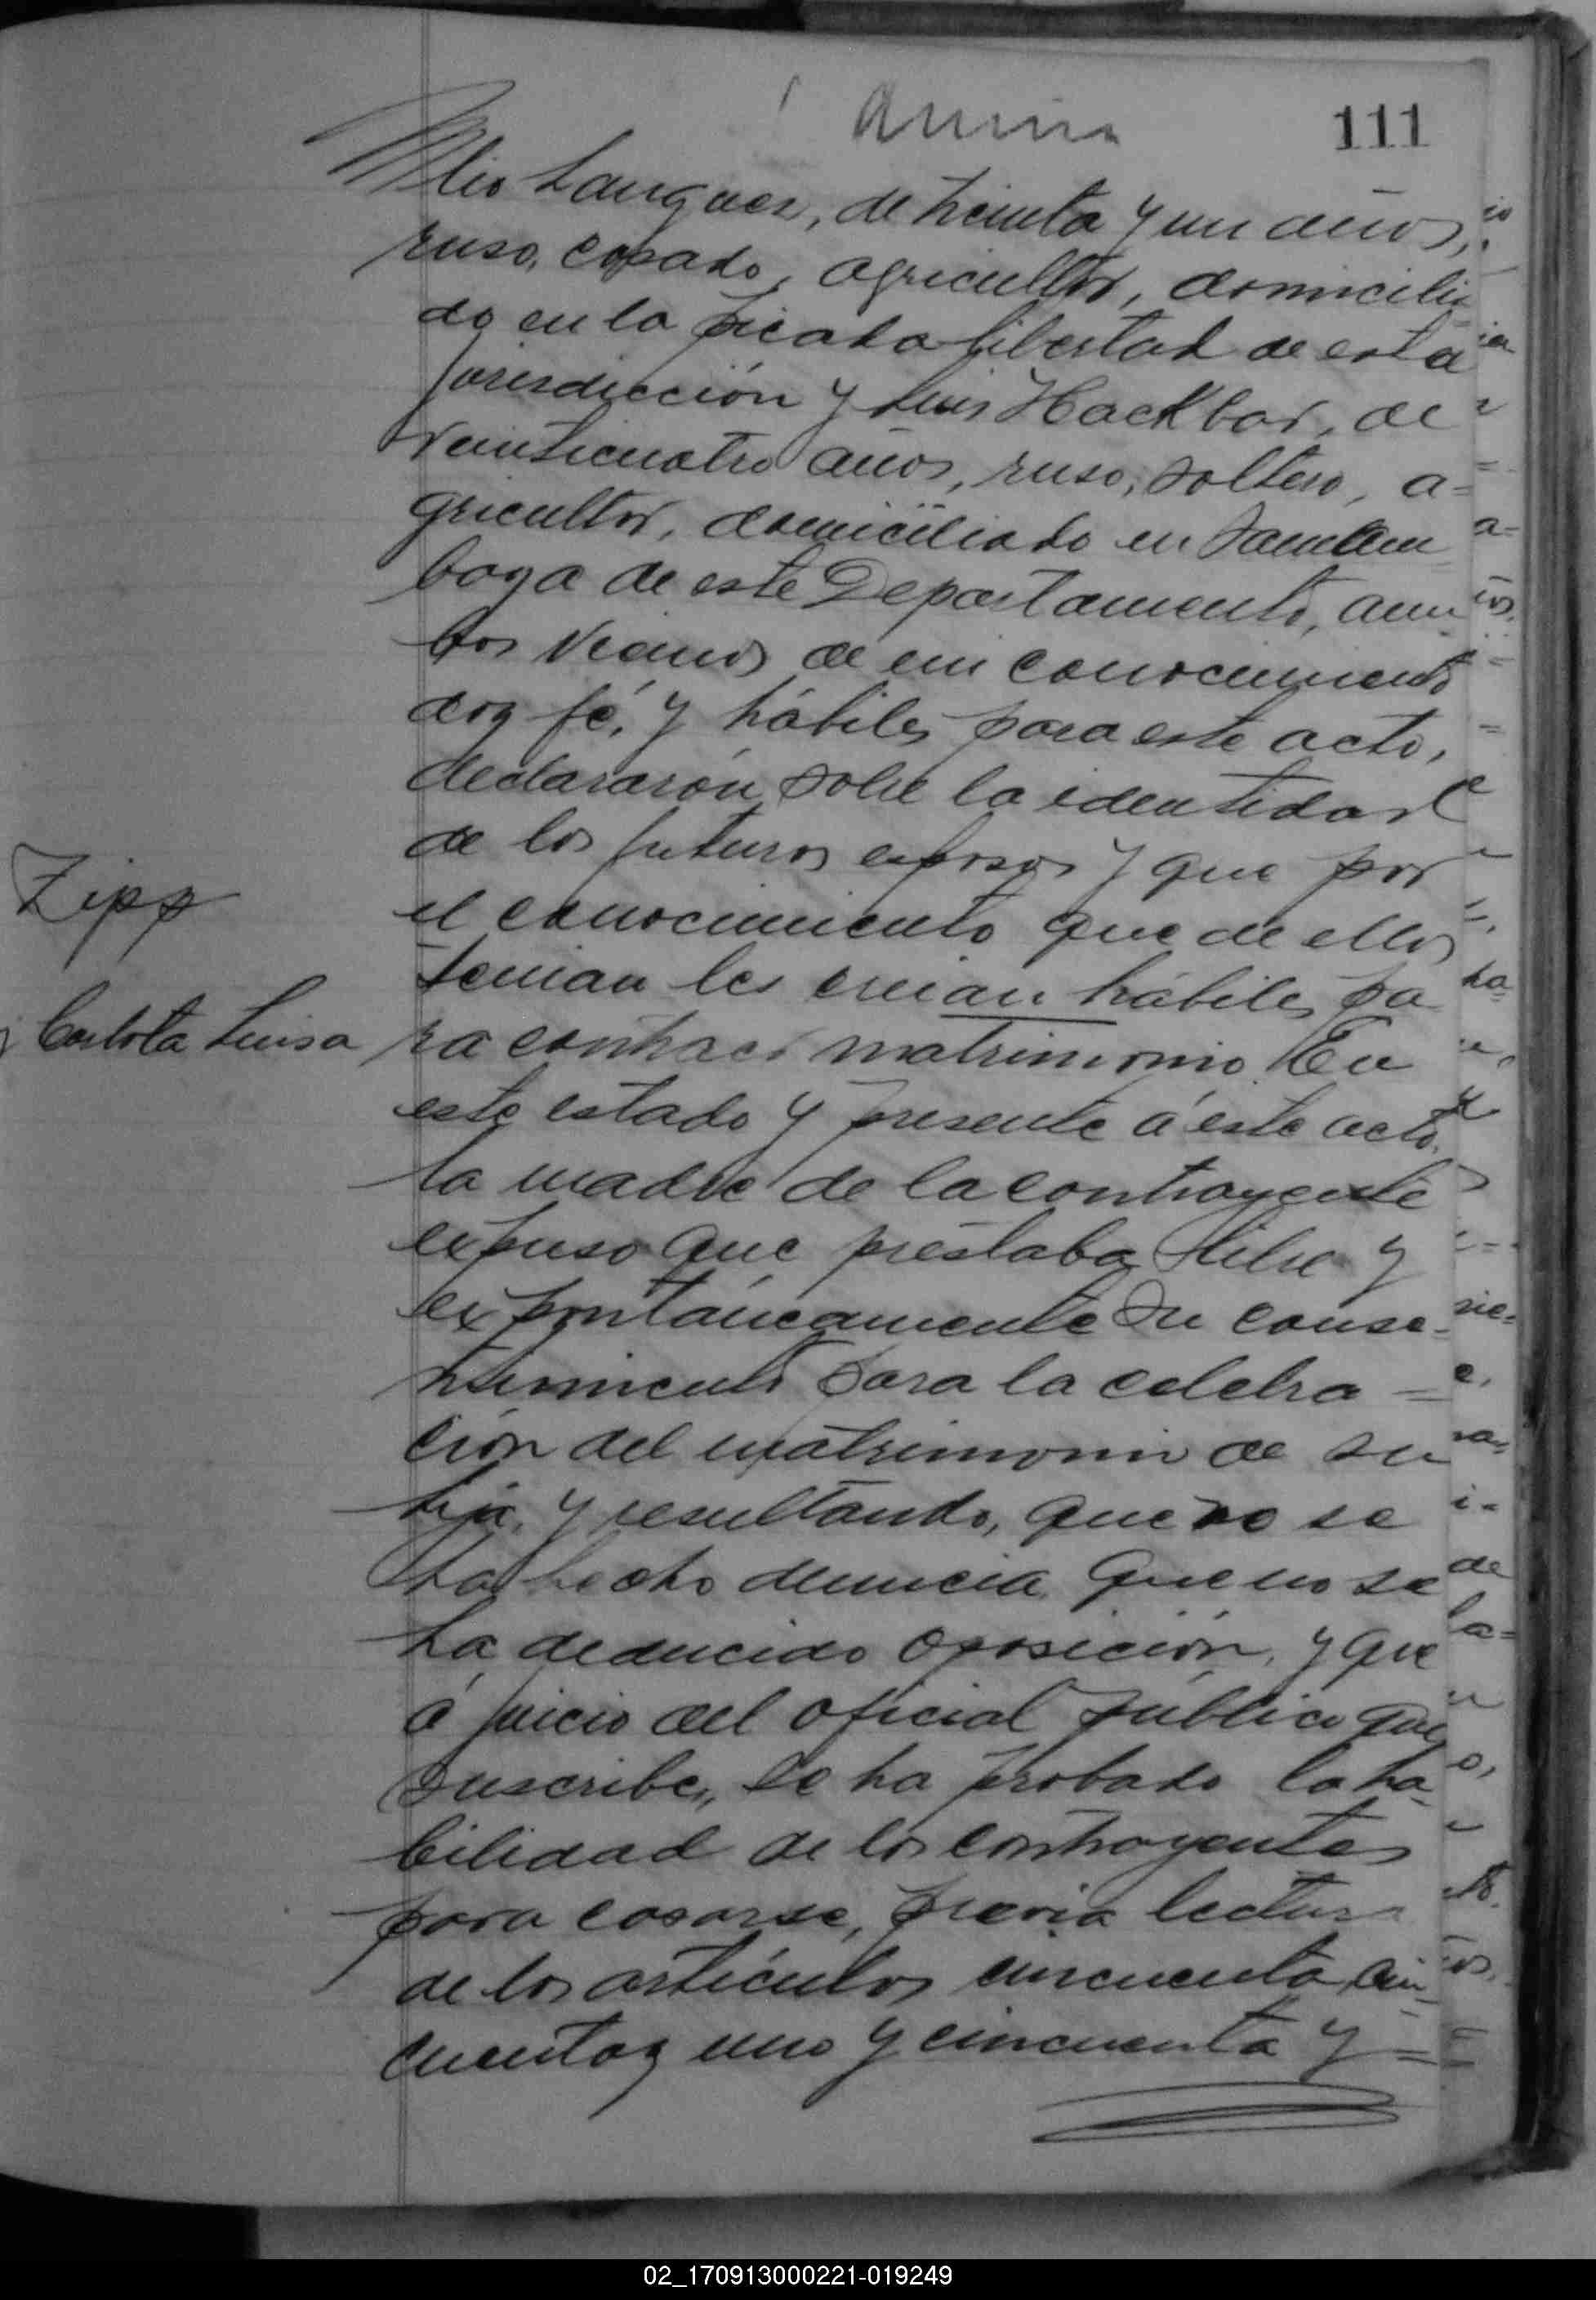 111
Langner, de treinta y un años,
ruso, casado, agricultor, domicilia
do en la picada Libertad de esta
jurisdicción y Luis Hackbar, de
veinticuatro años, ruso, soltero, a=
gricultor, domiciliado en
de este Departamento, am
bos vecinos de mi conocimiento
doy fé, y hábiles para este acto,
declararón sobre la identidad
de los futuros esposos y que por
Zipp
el conocimiento que de ellos
tenian les creian hábiles pa
Carlota Luisa
ra contraer matrimonio. En
este estado y presente á este acto
la madre de la contrayente
expuso que prestaba libre y
expontáneamente su conse-
ntimiento para la celebra=
ción del matrimonio de su
hija, y resultando, que no se
ha hecho denuncia que no se
ha deducido oposición, y que
á juicio del oficial público que
suscribe, se ha probado la ha-
bilidad de los contrayentes
para casarse, previa lectura
de los artículos cincuenta, cin-
cuenta y uno y cincuenta y =
02_170913000221-019249